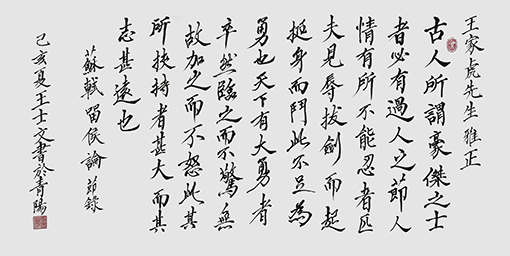 王家虎先生雅正
古人所謂豪傑之士
者必有過人之節人
情有所不能忍者匹
夫見辱拔劍而起
挺身而鬥此不足為
勇也天下有大勇者
卒然臨之而不驚無
故加之而不怒此其
所挾持者甚大而其
志甚遠也
蘇軾留侯論節錄
己亥夏王士文書於青陽